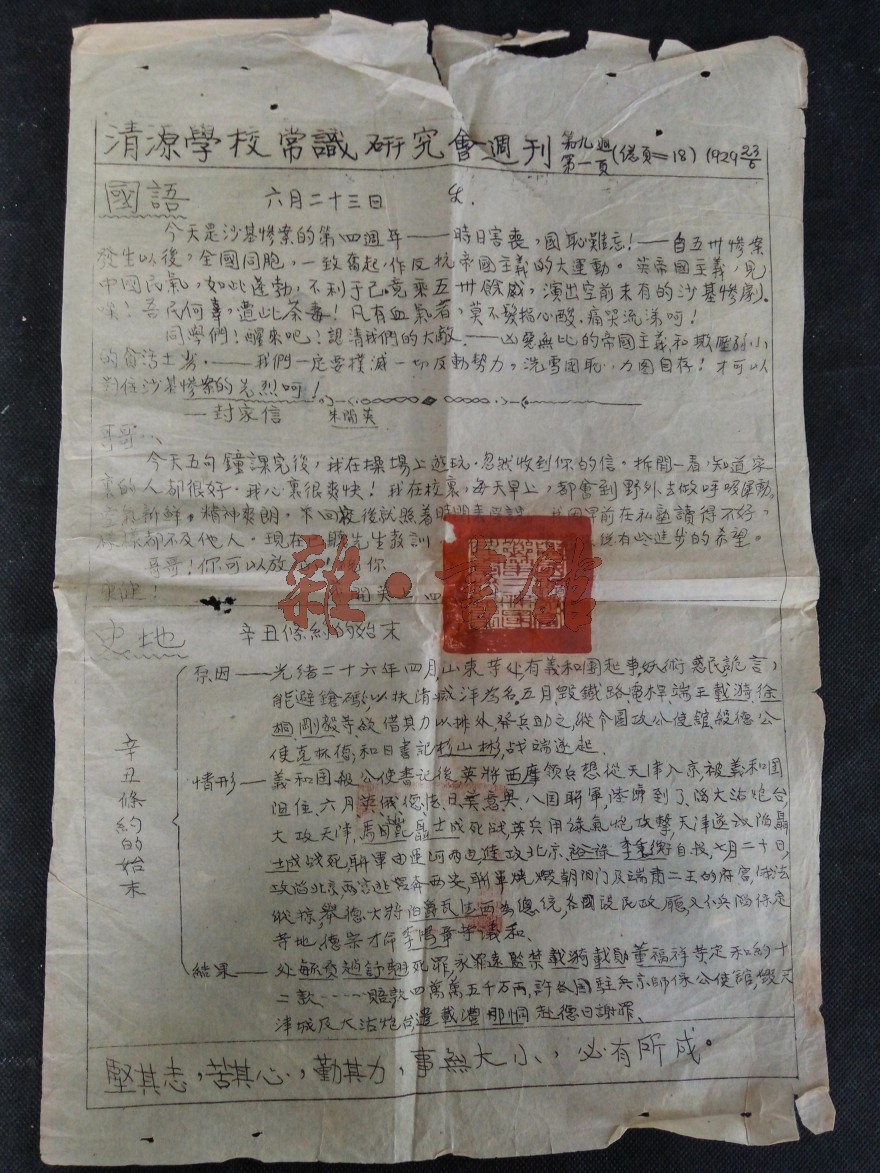 清源學校常識研究會週刊 第九週 第一頁 (總頁=18) 1929 23/6
國語 六月二十三日
今天是沙基慘案的第四週年——時日害喪,國恥難忘!——自五卅慘案
發生以後,全國同胞,一致奮起,作反抗帝國主義的大運動。英帝國主義,見
中國民氣,如此蓬勃,不利于己,竟乘五卅餘威,演出空前未有的沙基慘劇.
唉!吾民何辜,遭此荼毒!凡有血氣者,莫不髮指心酸,痛哭流涕呵!
同學們!醒來吧!認清我們的大敵——凶惡無比的帝國主義,和欺壓弱小
的貪污土劣.——我們一定要撲滅一切反動勢力,洗雪國恥,力圖自存!才可以
對住沙基慘案的先烈呵!
一封家信 朱開英
哥哥:
今天五句鐘課完後,我在操場上遊玩.忽然收到你的信.拆開一看,知道家
裏的人都很好.我心裏很爽快!我在校裏,每天早上,都會到野外去做呼吸運動.
空氣新鮮,精神爽朗.下回校後就照着時間表 早前在私塾讀得不好,
樣樣都不及他人.現在 先生教訓 總有些進步的希望。
哥哥!你可以放心
雜·書館
史地 辛丑條約的始末
辛丑條約的始末
原因——光緒二十六年四月,山東等处,有義和團起事,妖術惑民,詭言,
能避鎗砲,以扶清滅洋為名.五月,毀鐵路電桿.端王載漪.徐
桐.剛毅等欲借其力以排外,發兵助之,縱令圍攻公使館,殺德公
使克林德,和日書記杉山彬,战端遂起.
情形——義和团殺公使書記後,英將西摩領兵想從天津入京,被義和团
阻住.六月英俄德法日美意奧八国聯軍,陸續到了,陷大沽炮台,
大攻天津,馬玉崑聶士成死战,英兵用綠氣炮攻擊,天津遂以陷聶
士成战死,聯軍由運河两边進攻北京,裕祿李秉衡自殺,七月二十日,
攻陷北京,两宮出奔西安,聯軍燒燬朝陽門及端肅二王的府宮,俄法
縱掠,舉德大將伯爵瓦德西為總統,各國設民政廳,又分兵陷保定
等地.德宗才命李鴻章等議和.
結果——处毓賢趙舒翹死罪,永罪遠監禁載漪載勛董福祥等定和約十
二款……賠款四萬萬五千万两,許各国駐兵京師保公使館,毀天
津城及大沽炮台,遣載澧那桐赴德日謝罪.
堅其志,苦其心,勤其力,事無大小,必有所成。